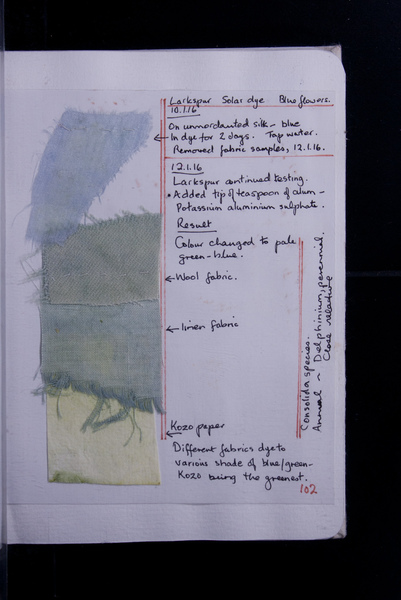 Larkspur Solar dye Blue flowers.
10.1.16
On unmordanted silk - blue
In dye for 2 days. Tap water.
Removed fabric samples, 12.1.16.
12.1.16
Larkspur continued testing.
• Added tip of teaspoon of alum -
Potassium aluminium sulphate.
Result
Colour changed to pale
green-blue.
Wool fabric.
linen fabric
Kozo paper
Different fabrics dye to
various shade of blue/green -
Kozo being the greenest.
102
Consolida species.
Annual ~ Delphinium, perennial.
Close relative